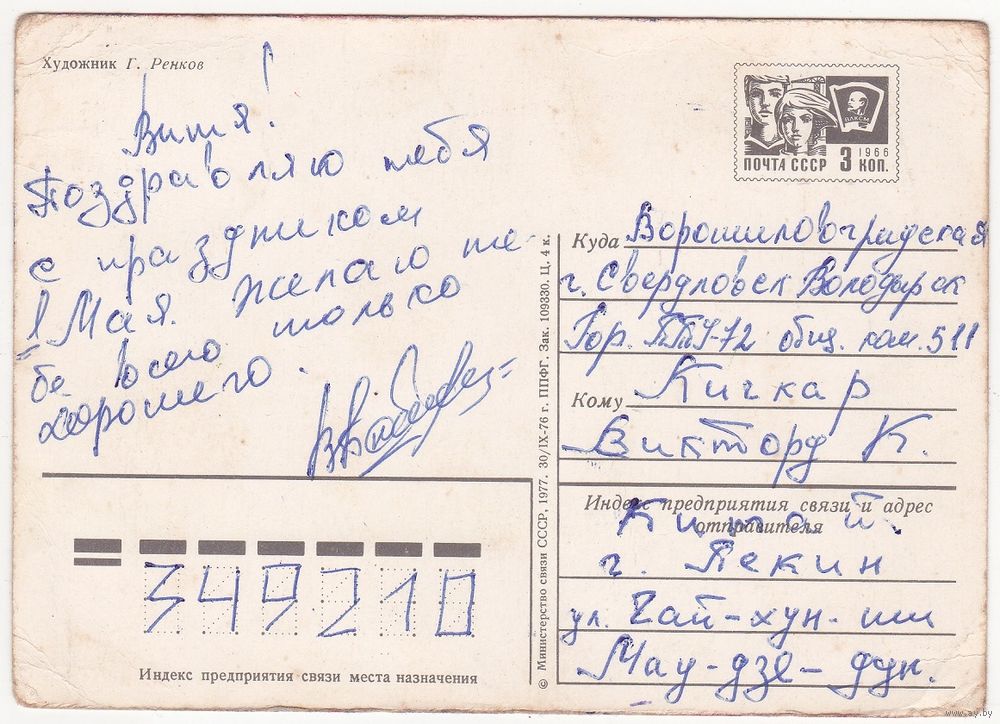 Художник Г. Ренков
Витя!
Поздравляю тебя
с праздником
1 Мая. Желаю те-
бе всего только
хорошего.
ПОЧТА СССР 3 КОП.
1966
ВЛКСМ
Куда Ворошиловградская
г. Свердловск Володарск
Гор. ПТУ-72 общ. ком. 511
Кому Кичкар
Виктору К.
Индекс предприятия связи и адрес
отправителя
Китай
г. Пекин
ул. Чай-хун-ши
Мау-дзе-дун.
349210
Индекс предприятия связи места назначения
© Министерство связи СССР, 1977. 30/IX-76 г. ППФГ. Зак. 109330. Ц. 4 к.
www.ay.by